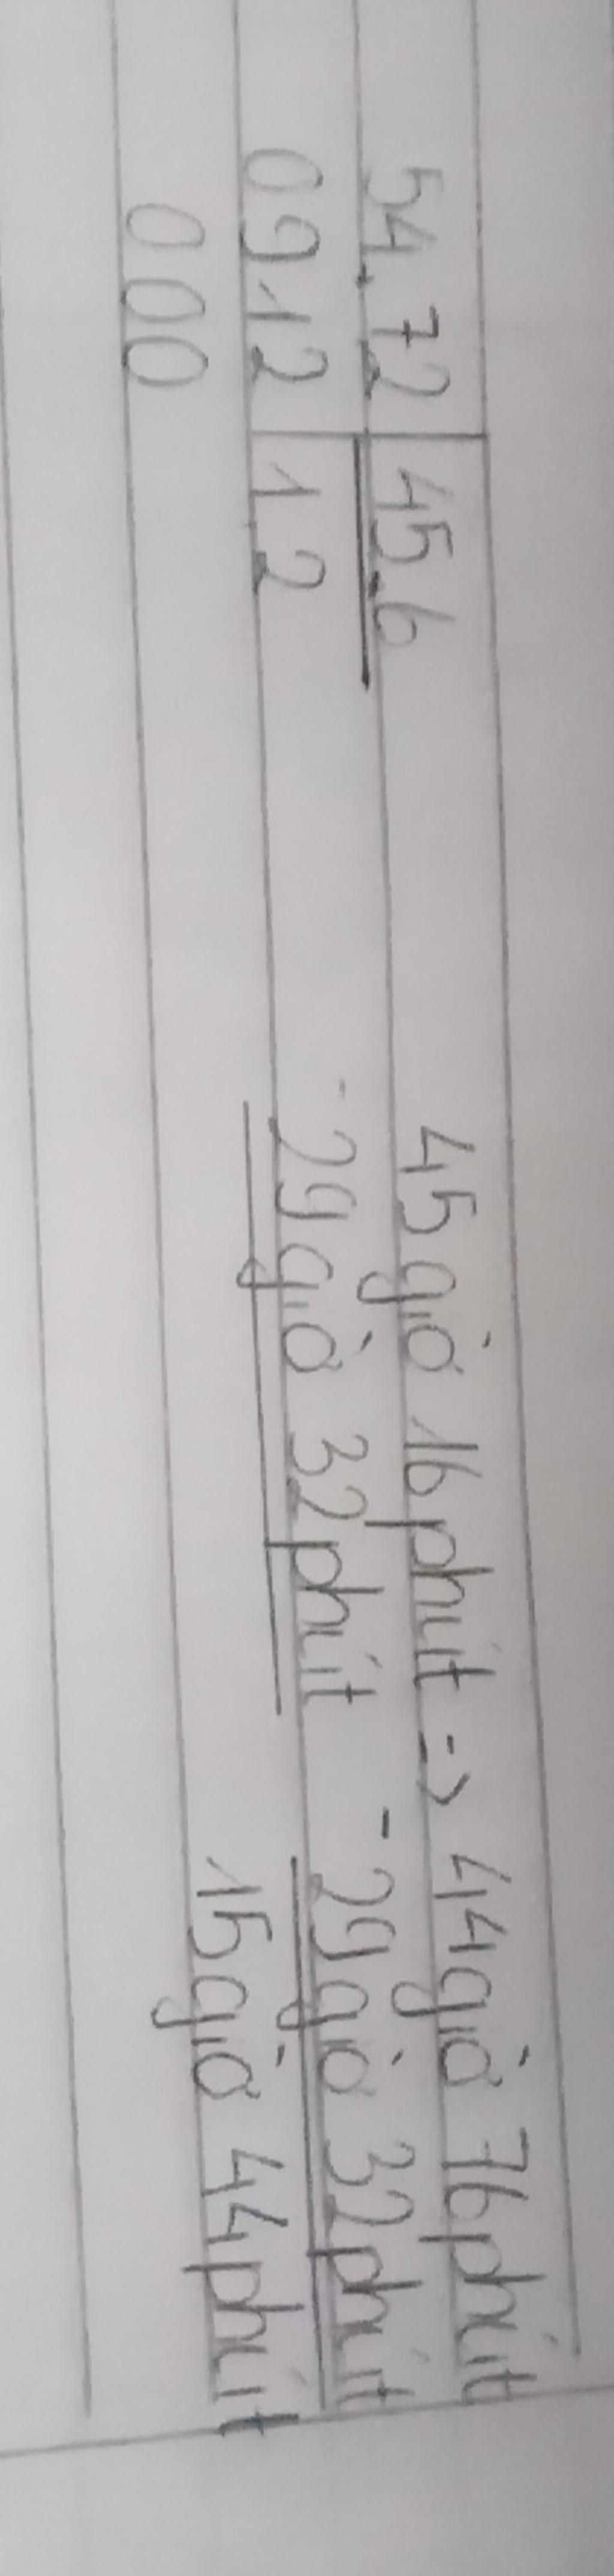 54,72 45,6
0912 1,2
000
45 giờ 16 phút => 44 giờ 76 phút
- 29 giờ 32 phút - 29 giờ 32 phút
15 giờ 44 phút